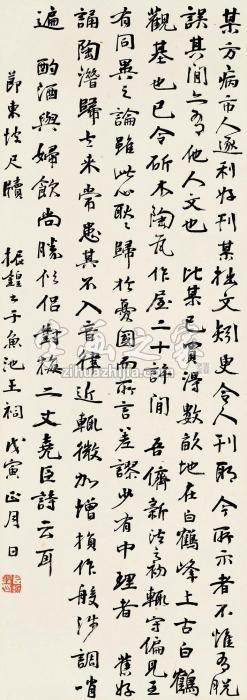 某方病市人逐利好刊某拙文欲更令人刊耶今所示者不惟有脱
誤其間亦有他人文也 比某已買得數畝地在白鶴峰上古白鶴
觀基也已令斫木陶瓦作屋二十許間 吾儕新法之初輒守偏見至
有同異之論雖此心耿耿歸於憂國而所言差謬少有中理者 舊好
誦陶潛歸去來常患其不入音律近輒微加增損作般涉調哨
遍 酌酒與婦飲尚勝俗侶對梅二丈堯臣詩云耳
節東坡尺牘 振鍠書于魚池王祠 戊寅正月 日
字画小新
zihuazhijia.com